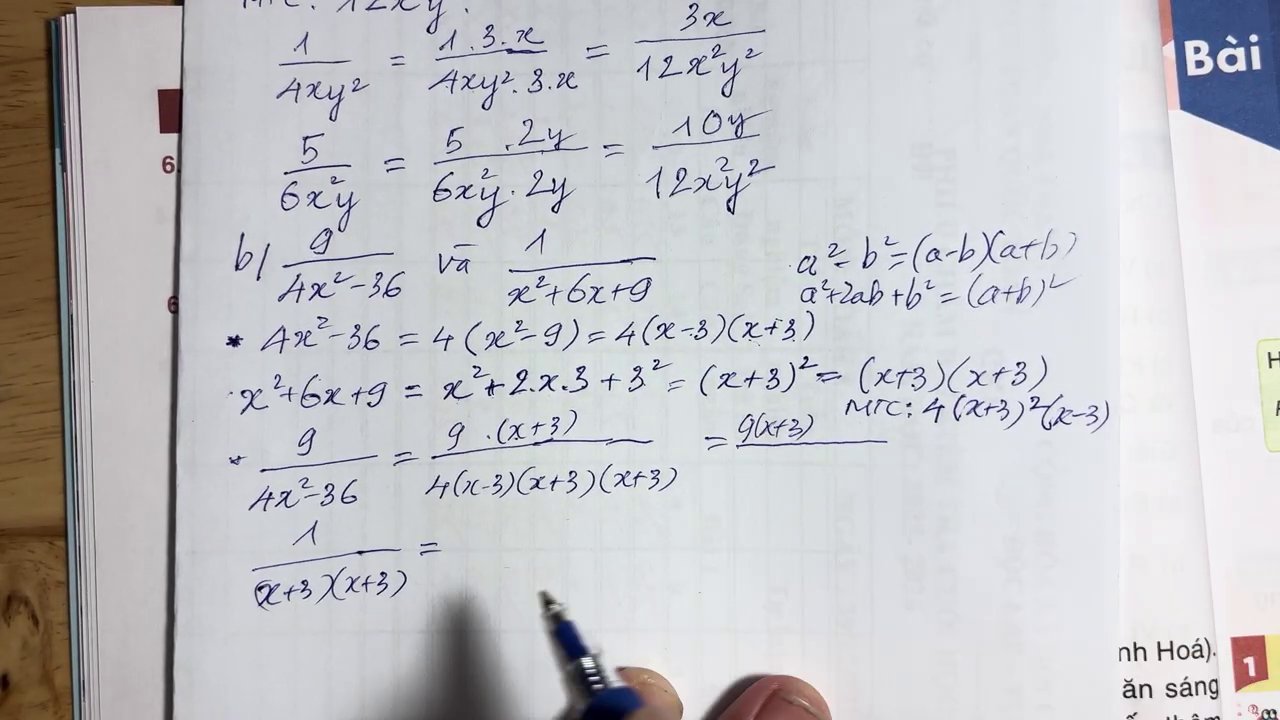 MTC: 12x²y²
1/4xy² = 1.3.x/4xy².3.x = 3x/12x²y²
5/6x²y = 5.2y/6x²y.2y = 10y/12x²y²
b/ 9/4x²-36 và 1/x²+6x+9
a²-b²=(a-b)(a+b)
a²+2ab+b²=(a+b)²
* 4x²-36 = 4(x²-9) = 4(x-3)(x+3)
x²+6x+9 = x²+2.x.3+3² = (x+3)² = (x+3)(x+3)
MTC: 4(x+3)²(x-3)
* 9/4x²-36 = 9.(x+3)/4(x-3)(x+3)(x+3) = 9(x+3)
1/(x+3)(x+3) =
Bài
6.
6
H
nh Hoá).
ăn sáng
1